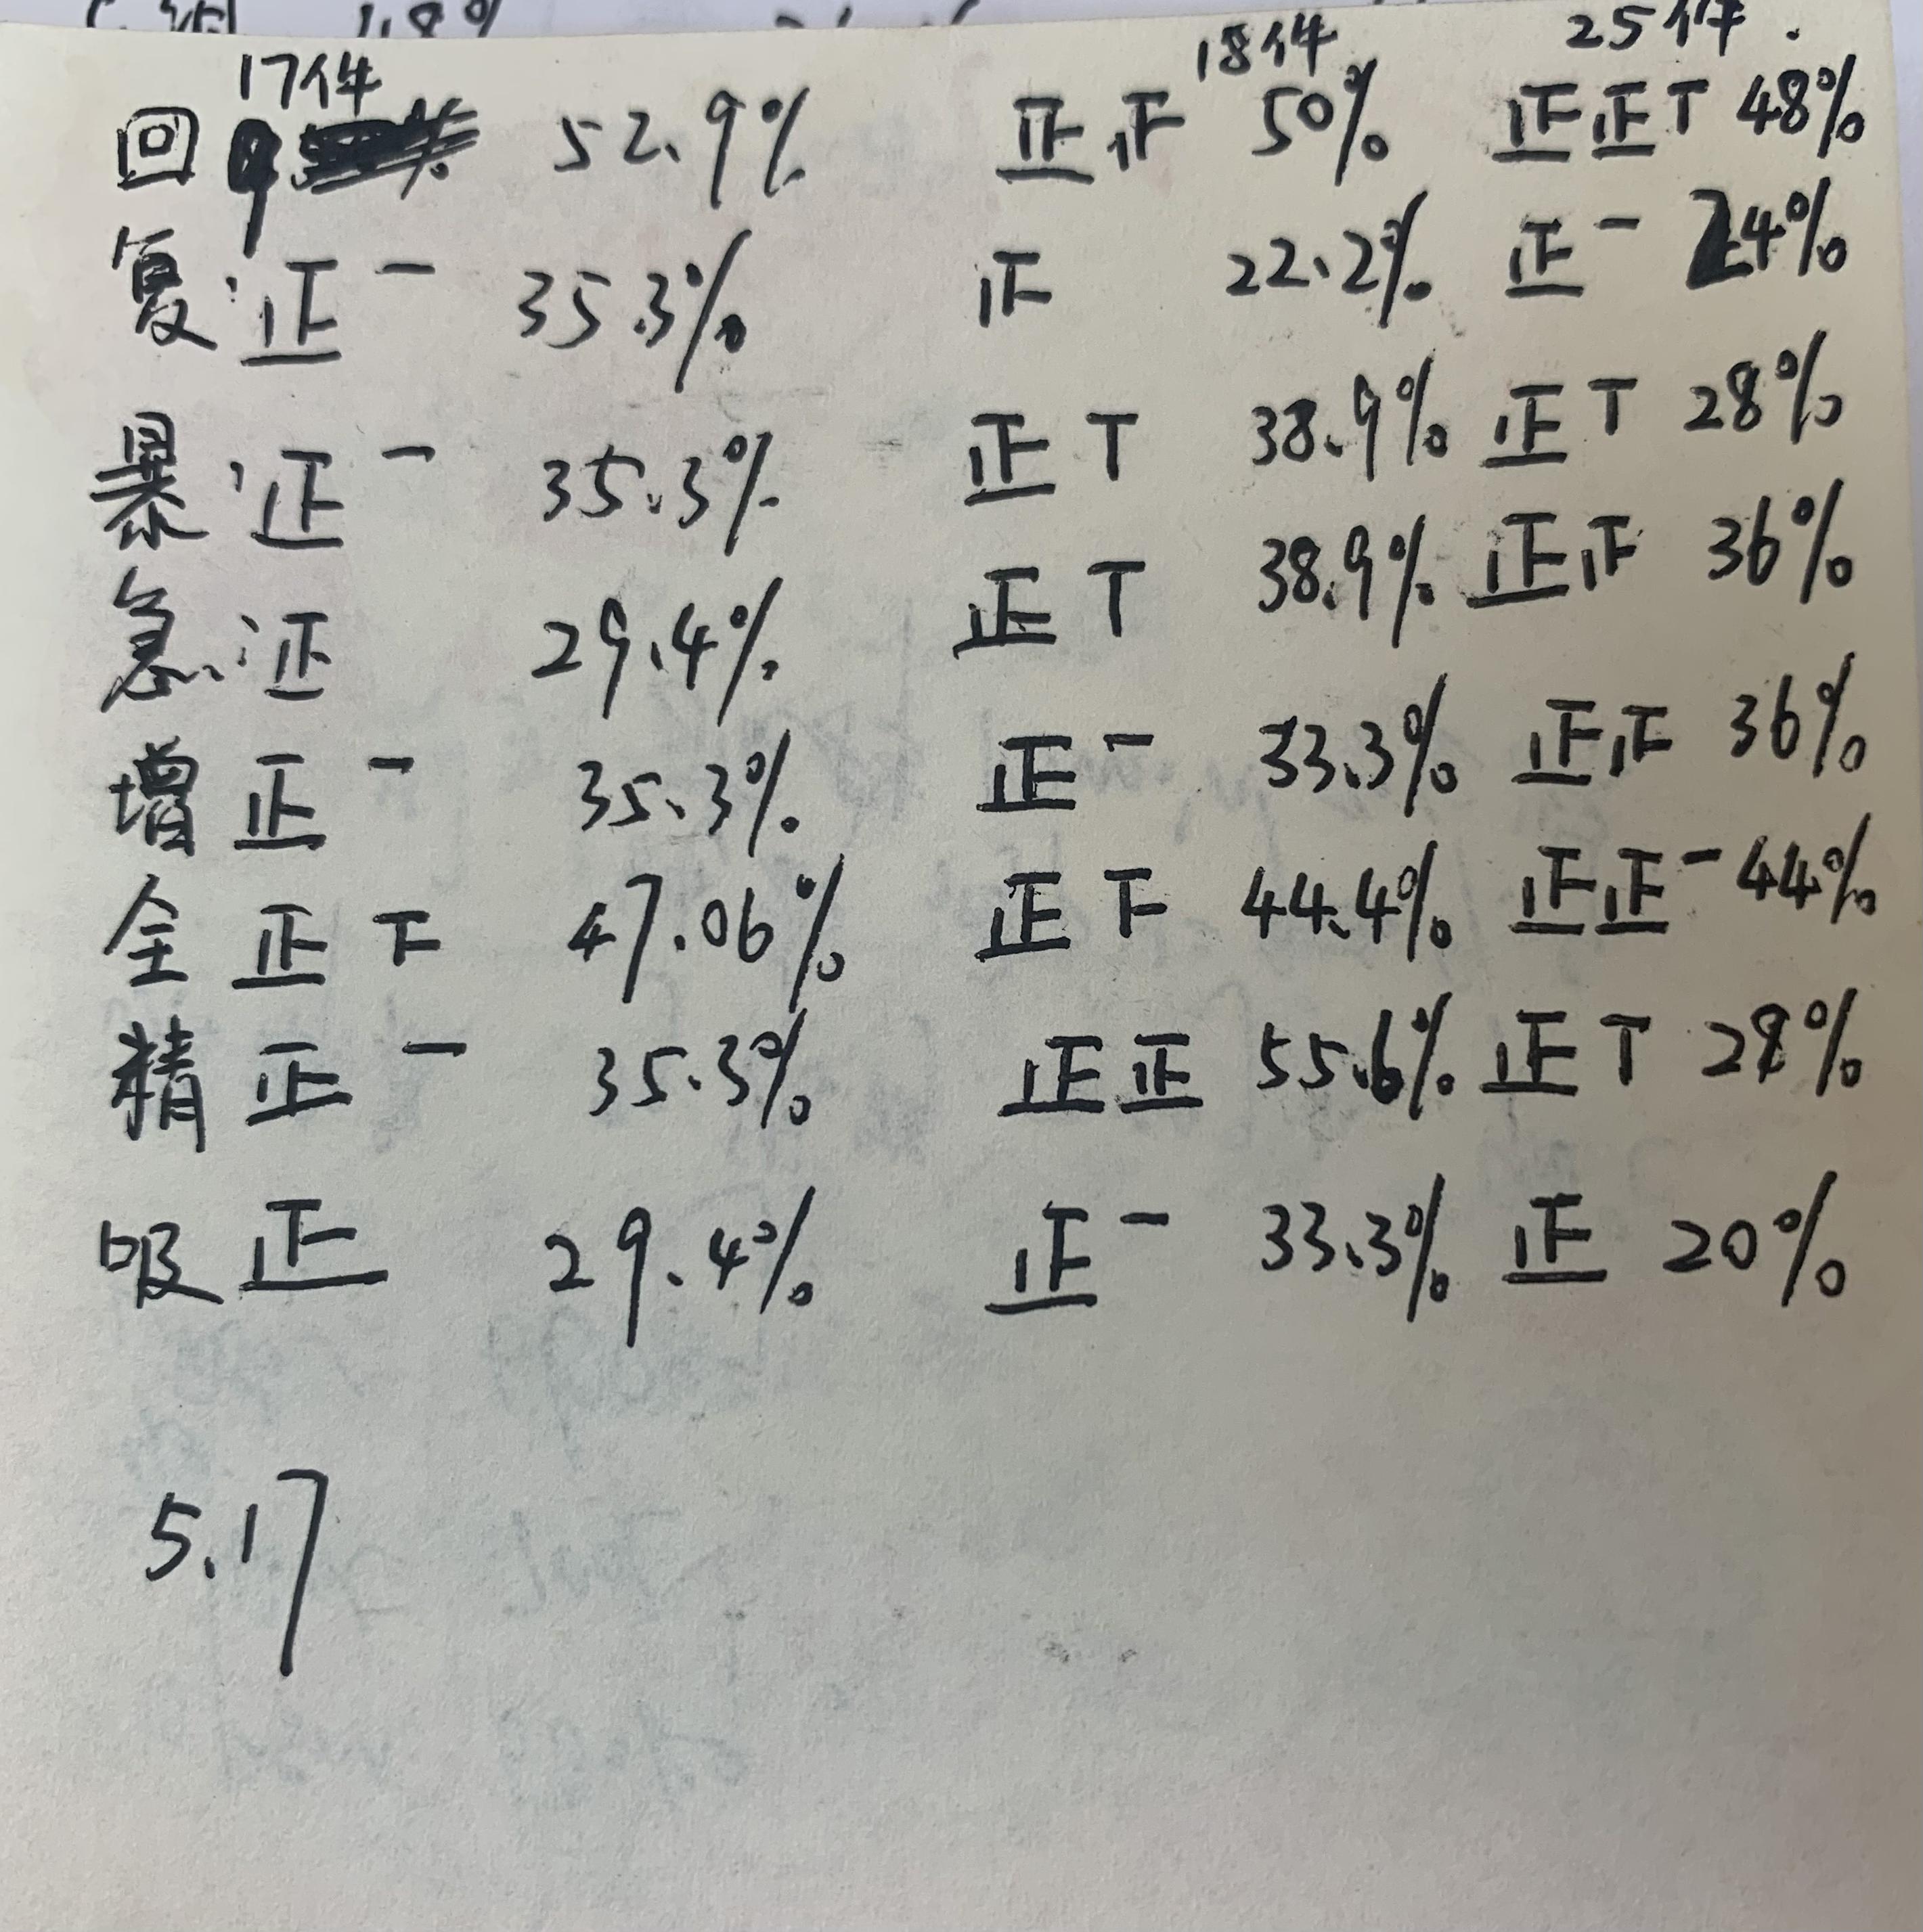 17件 18件 25件.
回 9 52.9% 正正 50% 正正T 48%
复 正一 35.3% 正 22.2% 正一 24%
暴 正一 35.3% 正T 38.9% 正T 28%
急 正 29.4% 正T 38.9% 正正 36%
增 正一 35.3% 正一 33.3% 正正 36%
全 正下 47.06% 正下 44.4% 正正一 44%
精 正一 35.3% 正正 55.6% 正T 28%
吸 正 29.4% 正一 33.3% 正 20%
5.17